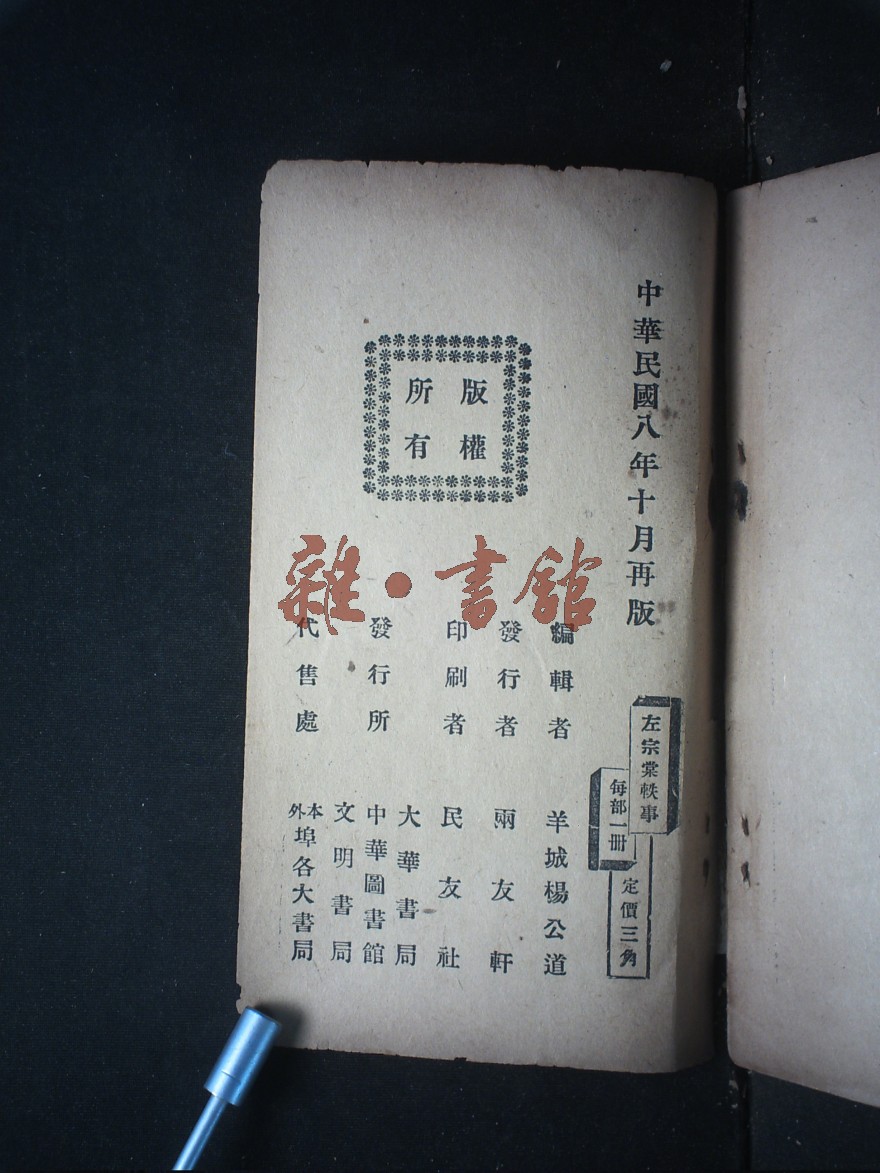 中華民國八年十月再版
左宗棠軼事
每部一冊
定價三角
版權
所有
編輯者 羊城楊公道
發行者 兩友軒
印刷者 民友社
發行所 大華書局
中華圖書館
文明書局
代售處 本外埠各大書局
雜·書館